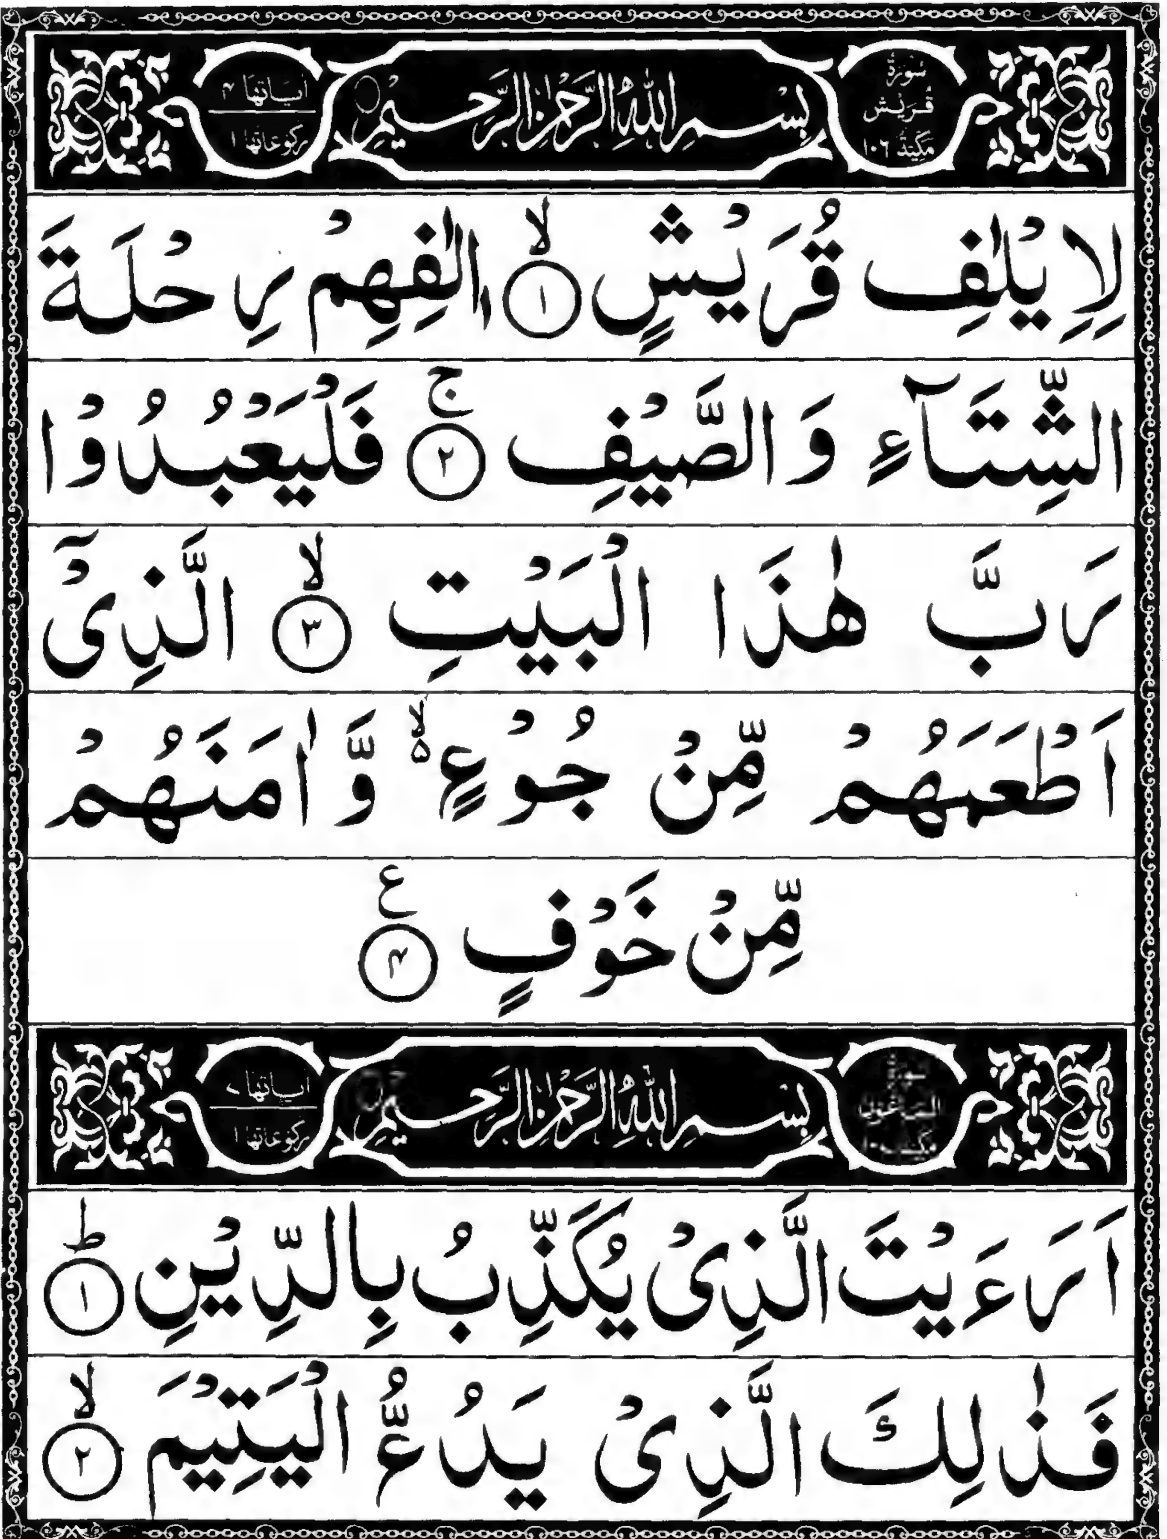 سُورَةُ
قُرَيْشٍ
مَكِّيَّةٌ ١٠٦
بِسْمِ اللهِ الرَّحْمٰنِ الرَّحِيْمِ
اٰيَاتُهَا ۴
رُكُوْعَاتُهَا ١
لِاِيْلٰفِ قُرَيْشٍ ۙ﴿١﴾ اٖلٰفِهِمْ رِحْلَةَ
الشِّتَآءِ وَالصَّيْفِ ۚ﴿٢﴾ فَلْيَعْبُدُوْا
رَبَّ هٰذَا الْبَيْتِ ۙ﴿٣﴾ الَّذِیْۤ
اَطْعَمَهُمْ مِّنْ جُوْعٍ ۙ۬ وَّاٰمَنَهُمْ
مِّنْ خَوْفٍ ﴿۴﴾ ع
سورة
الماعون
مكية
بِسْمِ اللهِ الرَّحْمٰنِ الرَّحِيْمِ
اٰيَاتُهَا ٧
رُكُوْعَاتُهَا ١
اَرَءَيْتَ الَّذِیْ يُكَذِّبُ بِالدِّيْنِ ؕ﴿١﴾
فَذٰلِكَ الَّذِیْ يَدُعُّ الْيَتِيْمَ ۙ﴿٢﴾